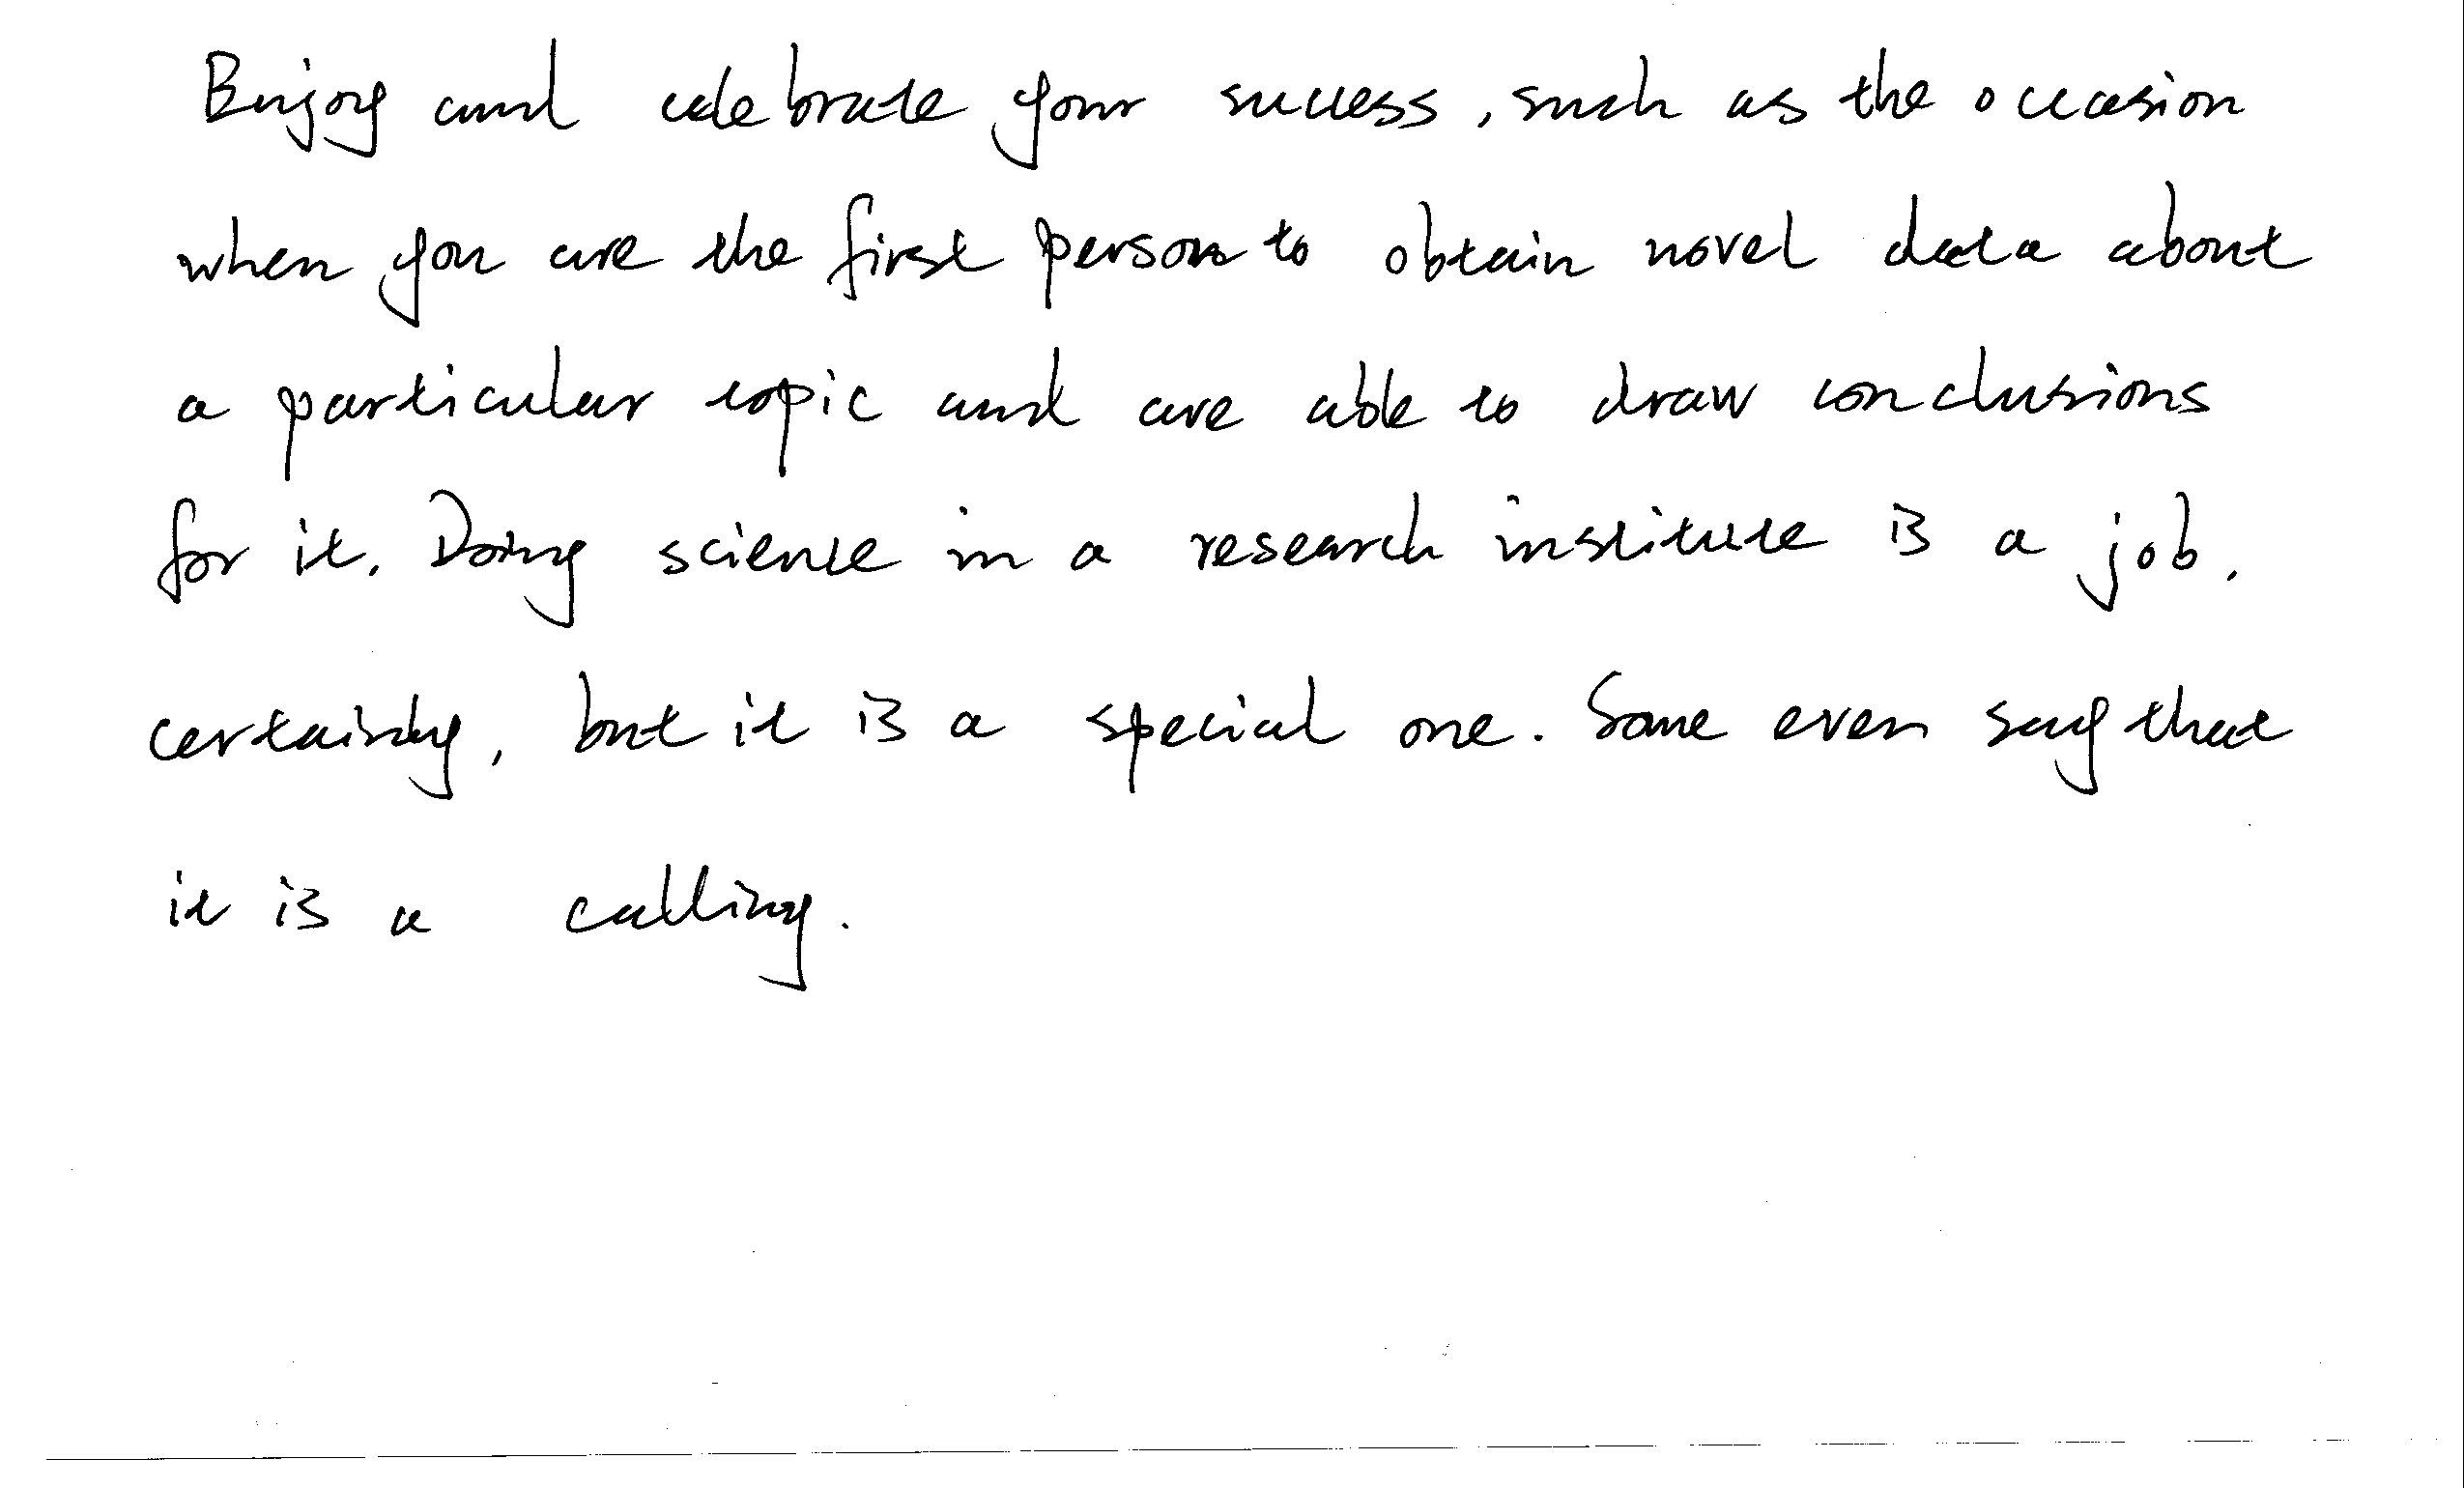 Enjoy and celebrate your success, such as the occasion
when you are the first person to obtain novel data about
a particular topic and are able to draw conclusions
for it. Doing science in a research institute is a job.
certainly, but it is a special one. Some even say that
it is a calling.